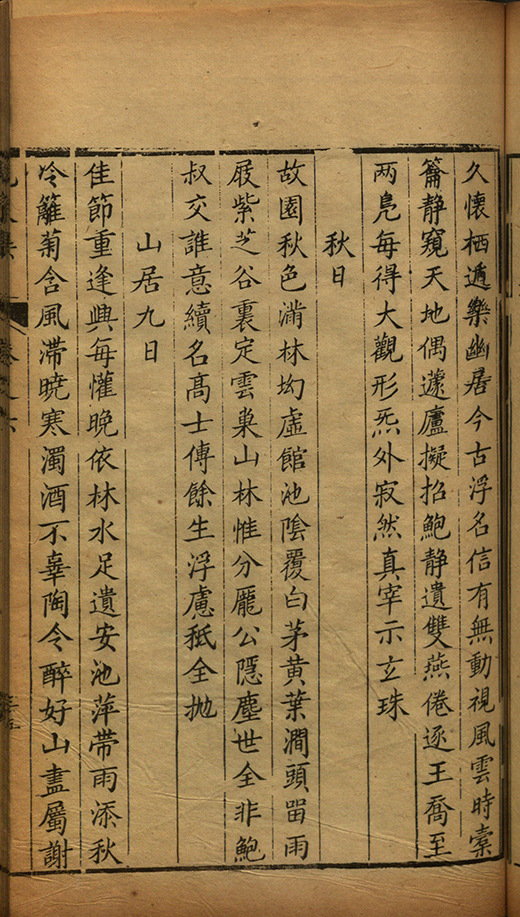 久懷栖遁樂幽居今古浮名信有無動視風雲時橐
籥靜窺天地偶蘧廬擬招鮑靜遺雙燕倦逐王喬至
两鳧每得大觀形炁外寂然真宰示玄珠
秋日
故園秋色滿林坳虛館池陰覆白茅黃葉澗頭畱雨
屐紫芝谷裏定雲巢山林惟分龐公隱塵世全非鮑
叔交誰意續名高士傳餘生浮慮秖全抛
山居九日
佳節重逢興每懽晚依林水足遺安池萍帶雨添秋
冷籬菊含風滯曉寒濁酒不辜陶令醉好山盡屬謝